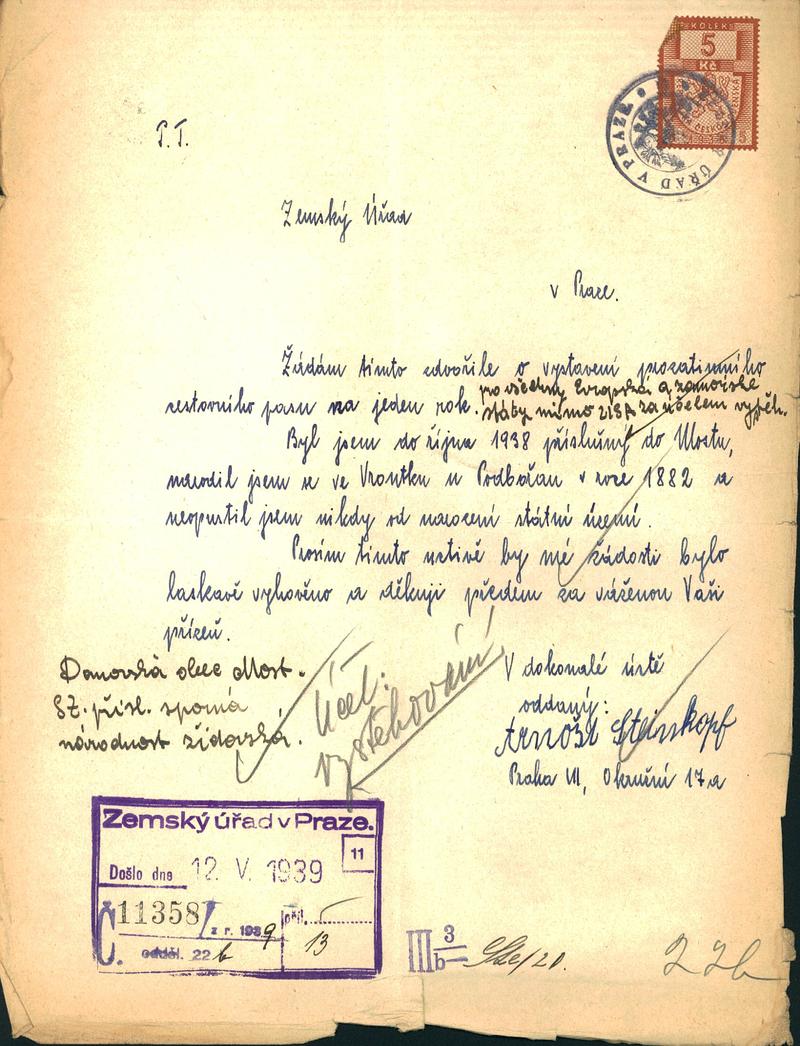 KOLEK
5
Kč
ÚŘAD V PRAZE
P. T.
Zemský Úřad
v Praze.
Žádám tímto zdvořile o vystavení prozatimního
cestovního pasu na jeden rok. pro všechny Evropské a zámořské
státy mimo USA za účelem vystěh.
Byl jsem do října 1938 příslušný do Mostu,
narodil jsem se ve Vroutku u Podbořan v roce 1882 a
neopustil jsem nikdy od narození státní území.
Prosím tímto uctivě by mé žádosti bylo
laskavě vyhověno a děkuji předem za váženou Vaši
přízeň.
Domovská obec Most.
SZ. přísl. sporná
národnost židovská.
Účel:
vystěhování
V dokonalé úctě
oddaný:
Arnošt Steinkopf
Praha VII, Okružní 17a
Zemský úřad v Praze.
11
Došlo dne 12. V. 1939
Č. 11358/ z r. 1939
příl.
odděl. 22 b
13
III 3
b
22b